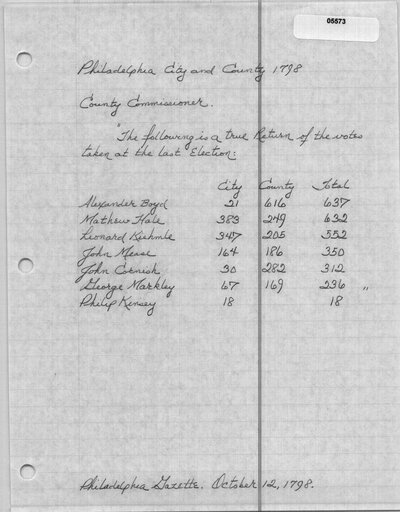 05573
Philadelphia City and County 1798
County Commissioner.
"The following is a true Return of the votes
taken at the last Election:
City County Total
Alexander Boyd 21 616 637
Mathew Hale 383 249 632
Leonard Kishmle 347 205 552
John Mease 164 186 350
John Cornish 30 282 312
George Markley 67 169 236 "
Philip Kinsey 18 18
Philadelphia Gazette. October 12, 1798.